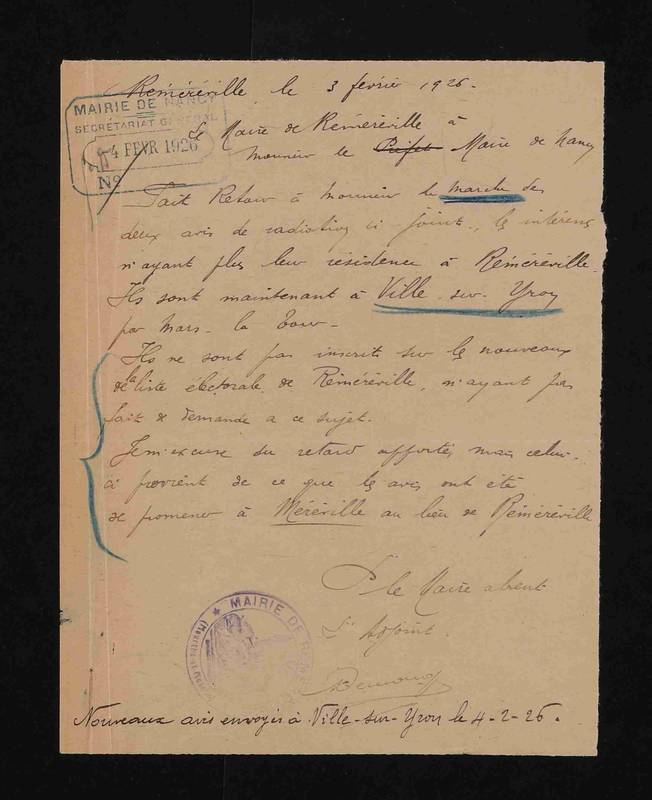 Réméréville, le 3 février 1926.
MAIRIE DE NANCY
SECRÉTARIAT GÉNÉRAL
4 FEVR 1926
N°
Le Maire de Réméréville à
Monsieur le Préfet Maire de Nancy
Fait Retour à Monsieur le des
deux avis de radiation ci joint, les intéressés
n'ayant plus leur résidence à Réméréville.
Ils sont maintenant à Ville-sur-Yron
par Mars-la-Tour-
Ils ne sont pas inscrits sur les nouveaux
de la liste électorale de Réméréville, n'ayant pas
fait de demande a ce sujet.
Je m'excuse du retard apportés mais celui-
ci provient de ce que les avis ont été
se promener à Méréville au lieu de Réméréville
Pr le Maire absent
L'Adjoint.
MAIRIE DE
Nouveaux avis envoyés à Ville-sur-Yron le 4-2-26.